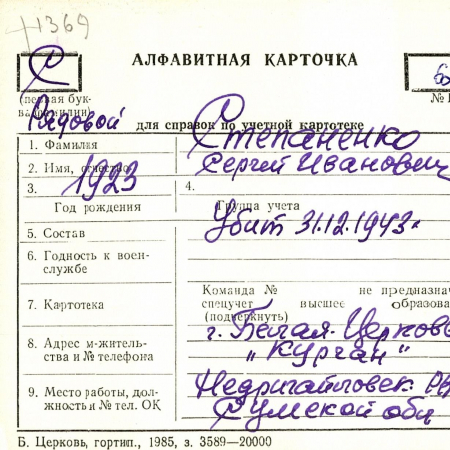 +1369
С
АЛФАВИТНАЯ КАРТОЧКА
(первая бук-
ва фамилии)
№
Рядовой
для справок по учетной картотеке
1. Фамилия Степаненко
2. Имя, отчество Сергей Иванович
3. 1923
4.
Год рождения Группа учета
5. Состав Убит 31.12.1943г
6. Годность к воен-
службе
Команда № не предназна
7. Картотека спецучет высшее образова
(подчеркнуть)
8. Адрес м-житель-
ства и № телефона
г. Белая-Церковь
„Курган"
9. Место работы, дол-
жность и № тел. ОК
Недригайловск. РВ
Сумской обл
Б. Церковь, гортип., 1985, з. 3589—20000